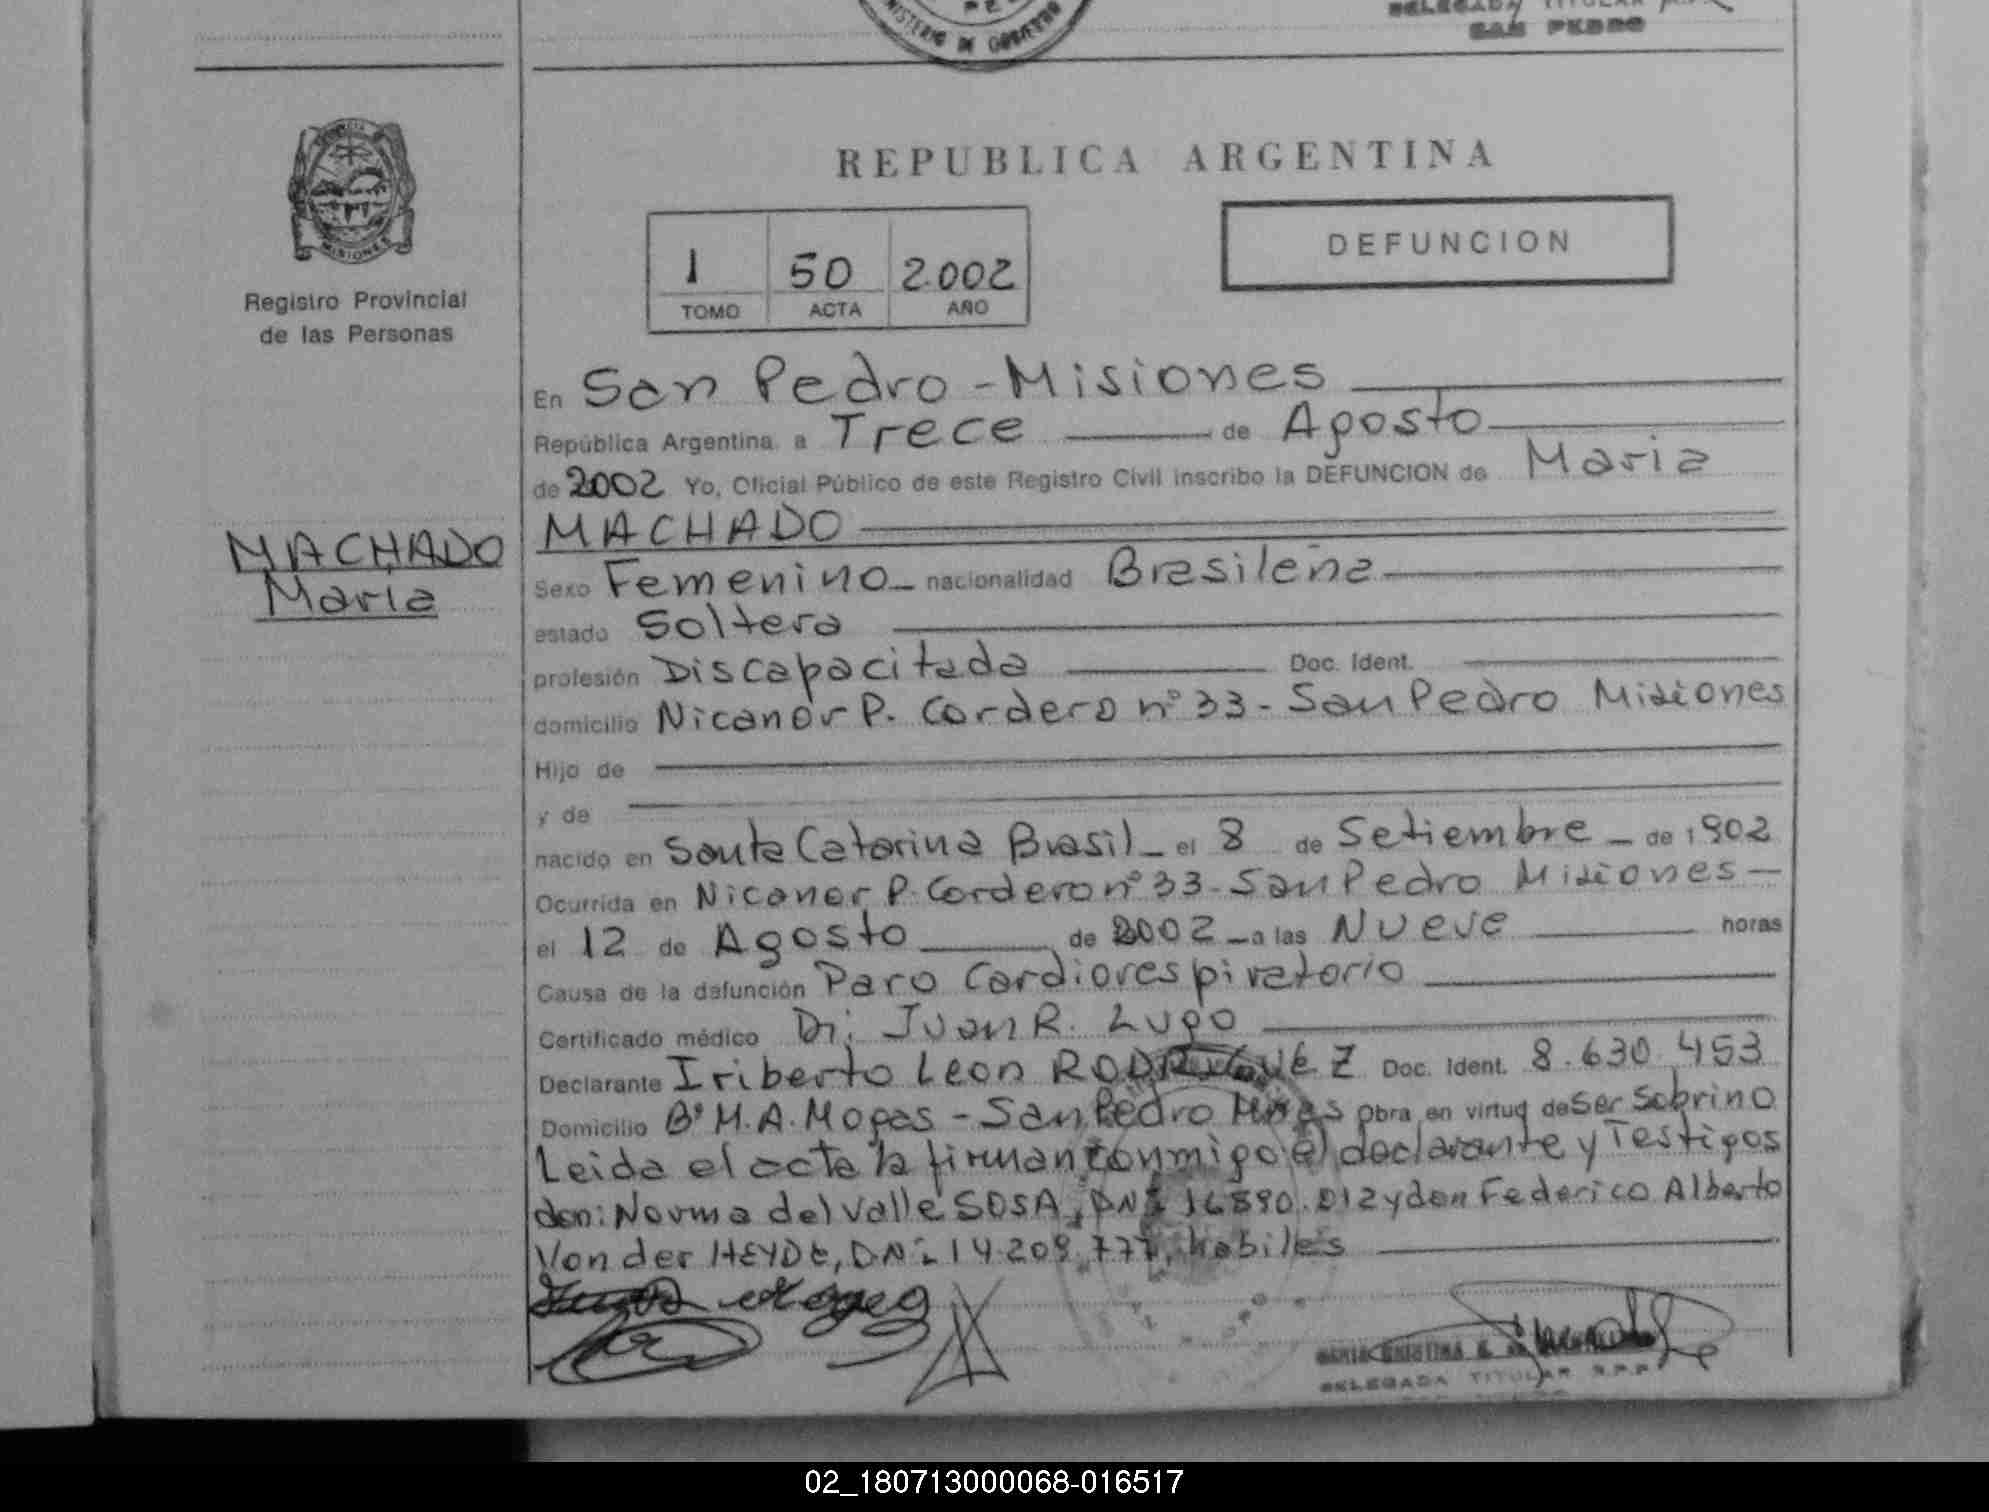 MINISTERIO DE GOBIERNO
DELEGADA TITULAR
SAN PEDRO
MISIONES
Registro Provincial
de las Personas
REPUBLICA ARGENTINA
DEFUNCION
1 50 2.002
TOMO ACTA AÑO
En San Pedro - Misiones
República Argentina a Trece de Agosto
de 2002 Yo, Oficial Público de este Registro Civil inscribo la DEFUNCION de Maria
MACHADO
MACHADO
Maria
Sexo Femenino nacionalidad Brasileña
estado Soltera
profesión Discapacitada Doc. Ident.
domicilio Nicanor P. Cordero n° 33 - San Pedro Misiones
Hijo de
y de
nacido en Santa Catarina Brasil el 8 de Setiembre de 1902
Ocurrida en Nicanor P. Cordero n° 33 - San Pedro Misiones
el 12 de Agosto de 2002 a las Nueve horas
Causa de la defunción Paro Cardiorespiratorio
Certificado médico Dr. Juan R. Lugo
Declarante Iriberto Leon RODRIGUEZ Doc. Ident. 8.630.453
Domicilio B° M.A. Mogas - San Pedro Mnes Obra en virtud de Ser Sobrino
Leida el acta la firman conmigo el declarante y Testigos
don: Norma del Valle SOSA, DNI 16.890.012 y don Federico Alberto
Von der HEYDE, DNI 14.209.777, habiles
DELEGADA TITULAR R.P.P.
02_180713000068-016517